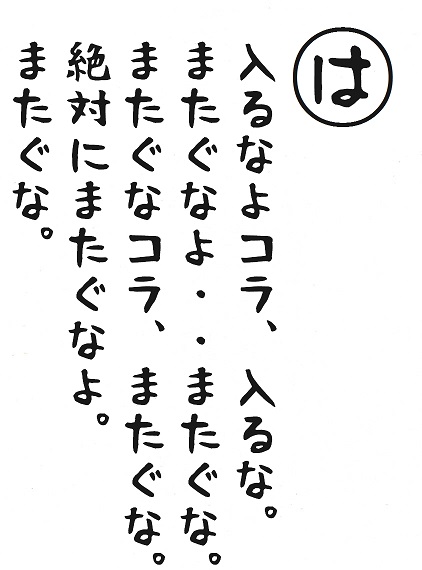 は
入るなよコラ、入るな。
またぐなよ・・またぐな。
またぐなコラ、またぐな。
絶対にまたぐなよ。
またぐな。